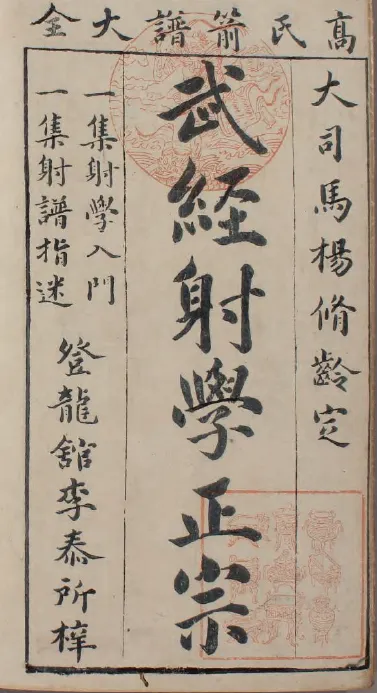 高氏箭譜大全
大司馬楊脩齡定
武經射學正宗
一集射學入門
一集射譜指迷
登龍館李泰所梓